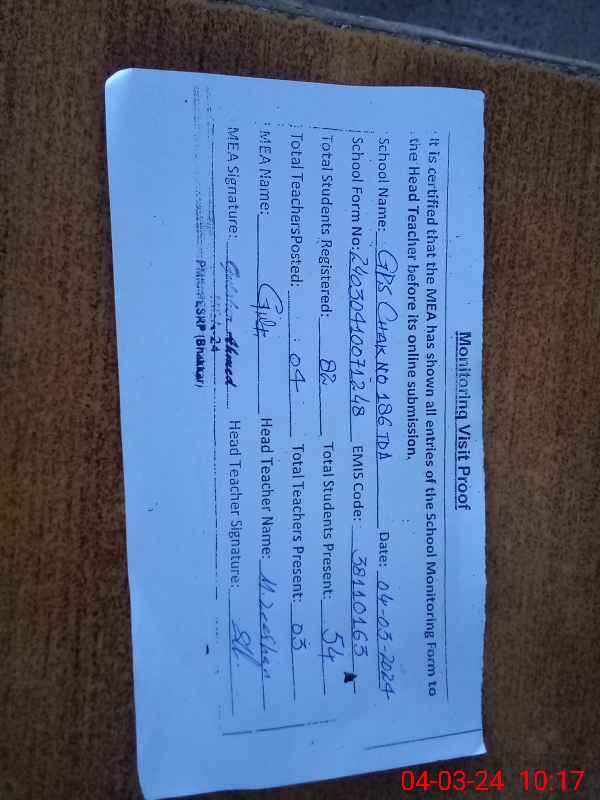 Monitoring Visit Proof
It is certified that the MEA has shown all entries of the School Monitoring Form to
the Head Teacher before its online submission.
School Name: GPS CHAK NO 186 TDA Date: 04-03-2024
School Form No: 24030410071248 EMIS Code: 38110163
Total Students Registered: 82 Total Students Present: 54
Total TeachersPosted: 04 Total Teachers Present: 03
MEA Name: Head Teacher Name: M. Zeeshan
MEA Signature: Ahmed Head Teacher Signature:
(Bhakkar)
04-03-24 10:17